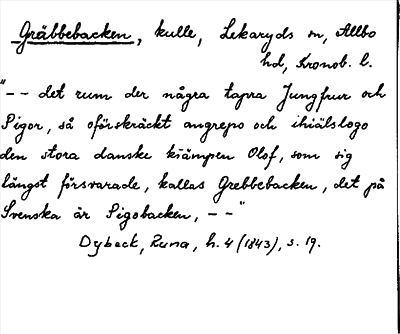 Gräbbebacken, kulle, Lekaryds sn, Allbo
hd, Kronob. l.
"-- det rum der några tapra Jungfrur och
Pigor, så oförskräckt angrepo och ihiälslogo
den stora danske kiämpen Olof, som sig
längst försvarade, kallas Grebbebacken, det på
Svenska är Pigobacken, --"
Dybeck, Runa, h. 4 (1843), s. 19.